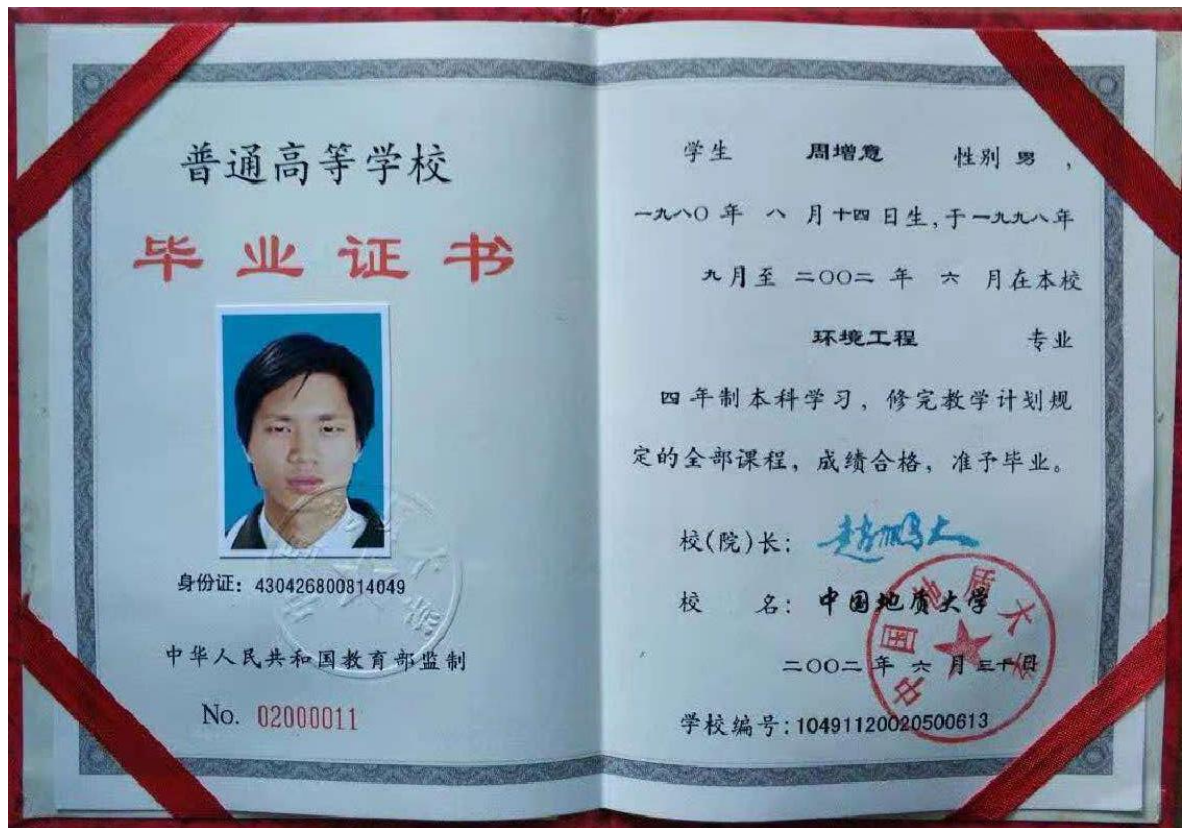 普通高等学校
毕业证书
身份证：430426800814049
中华人民共和国教育部监制
No. 02000011
学生 周增意 性别 男，
一九八〇年 八 月十四日生，于一九九八年
九月至 二〇〇二 年 六 月在本校
环境工程 专业
四年制本科学习，修完教学计划规
定的全部课程，成绩合格，准予毕业。
校(院)长：赵鹏大
校 名：中国地质大学
二〇〇二年 六 月三十日
学校编号：10491120020500613
中国地质大学